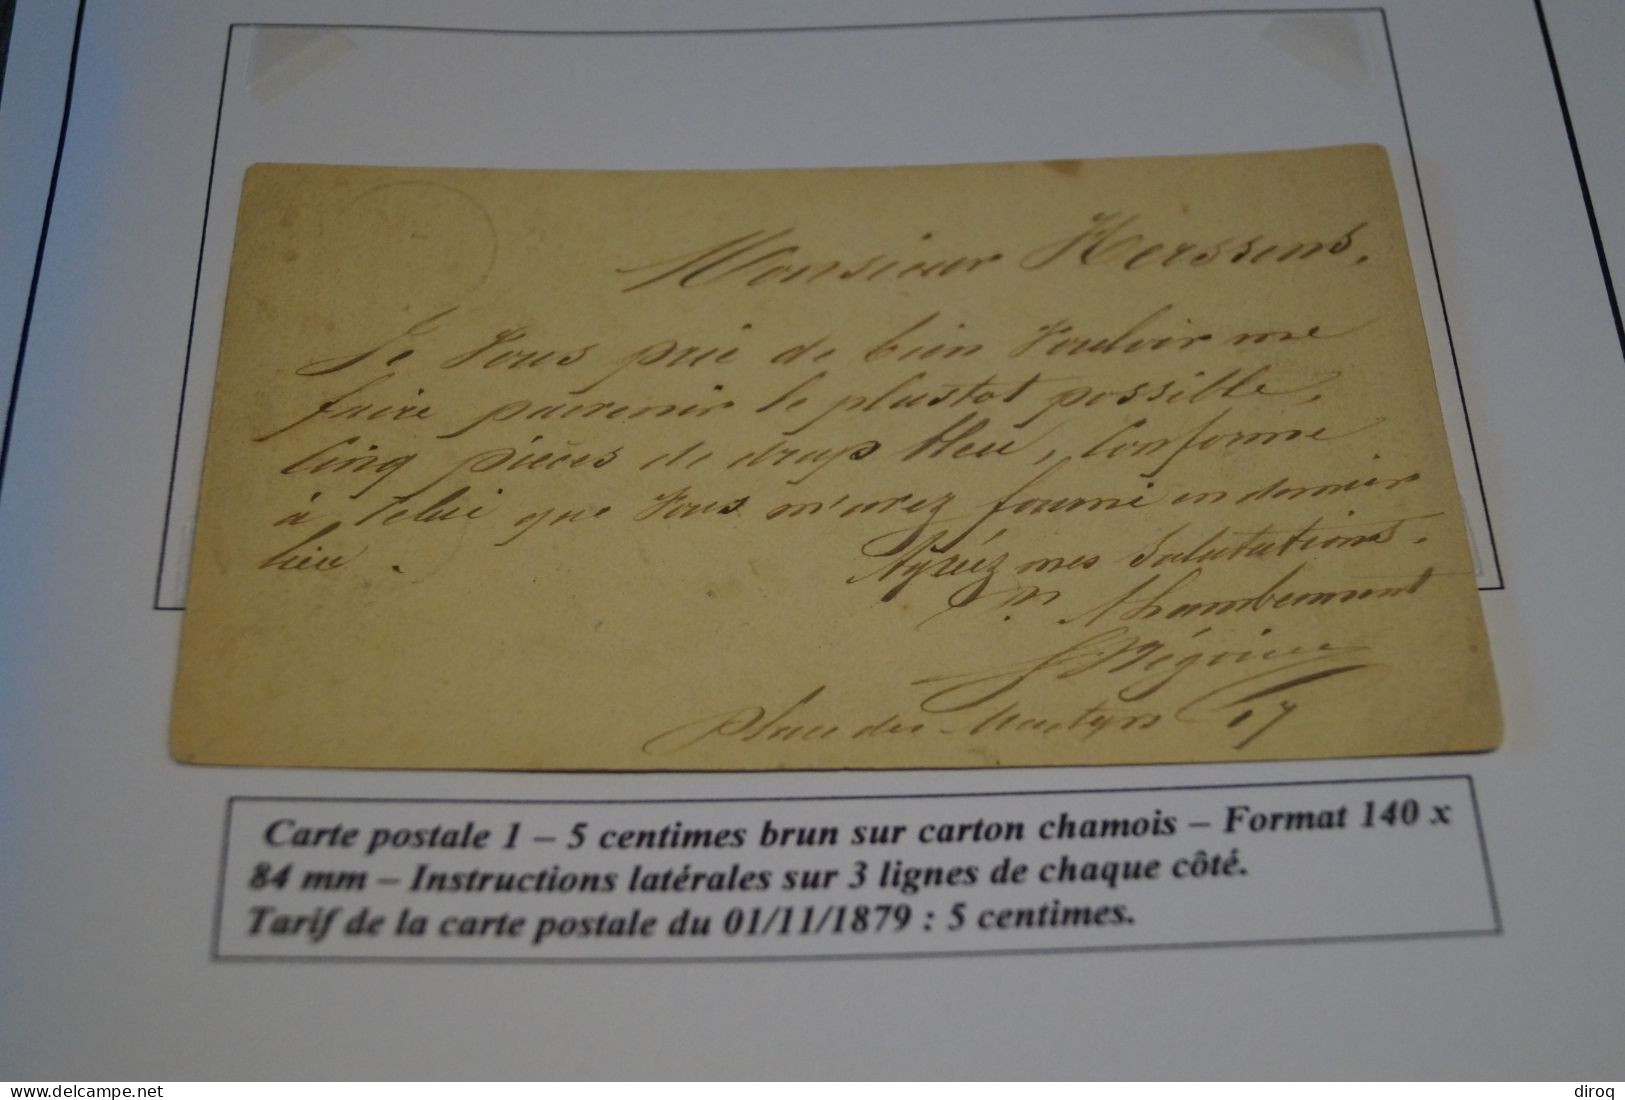 Monsieur Herssens,
Je Vous prie de bien Vouloir me
faire parvenir le plustot possible,
Cinq pièces de drap bleu, Conforme
à Celui que Vous m'avez fourni en dernier
lieu.
Agréez mes Salutations.
Négocier
place des Martyrs 17
Carte postale 1 – 5 centimes brun sur carton chamois – Format 140 x
84 mm – Instructions latérales sur 3 lignes de chaque côté.
Tarif de la carte postale du 01/11/1879 : 5 centimes.
www.delcampe.net
diroq